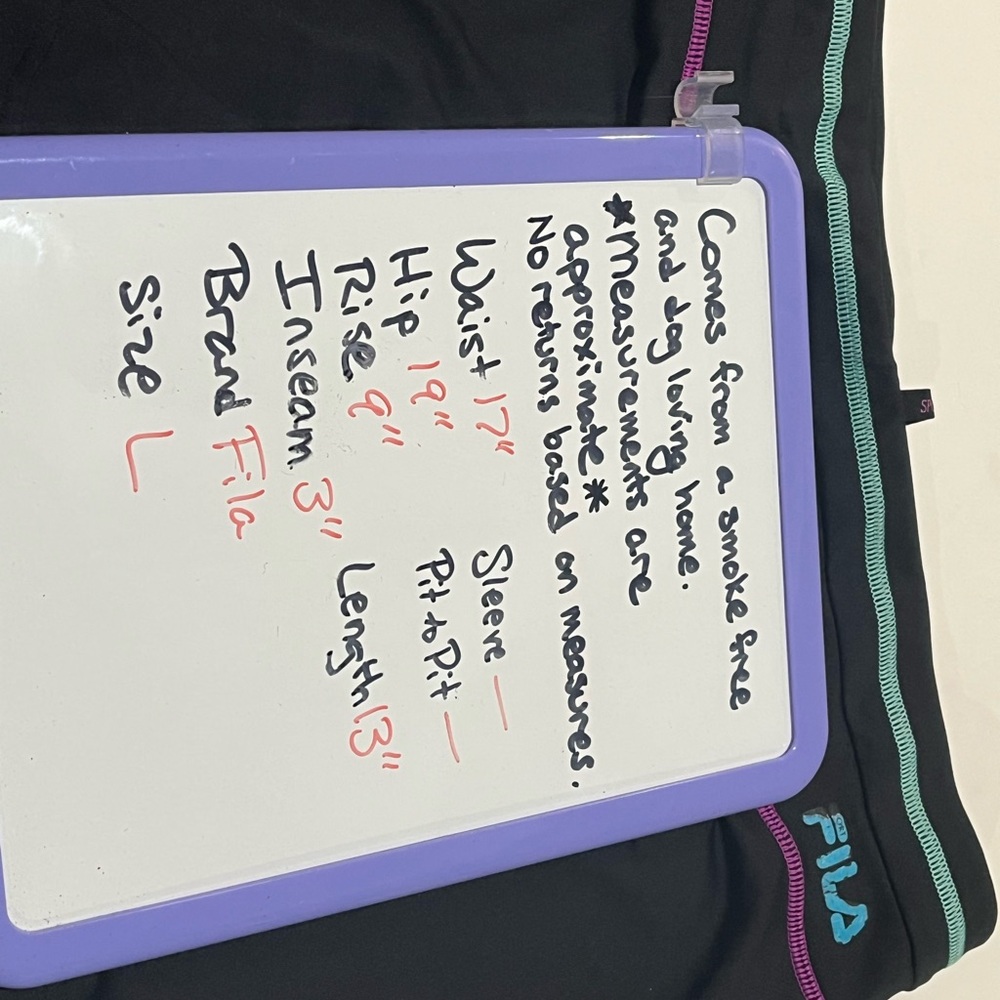 Comes from a smoke free
and dog loving home.
*Measurements are
approximate*
No returns based on measures.
Waist 17" Sleeve —
Hip 19" Pit to Pit —
Rise 9"
Inseam 3" Length 13"
Brand Fila
Size L
FILA
SP